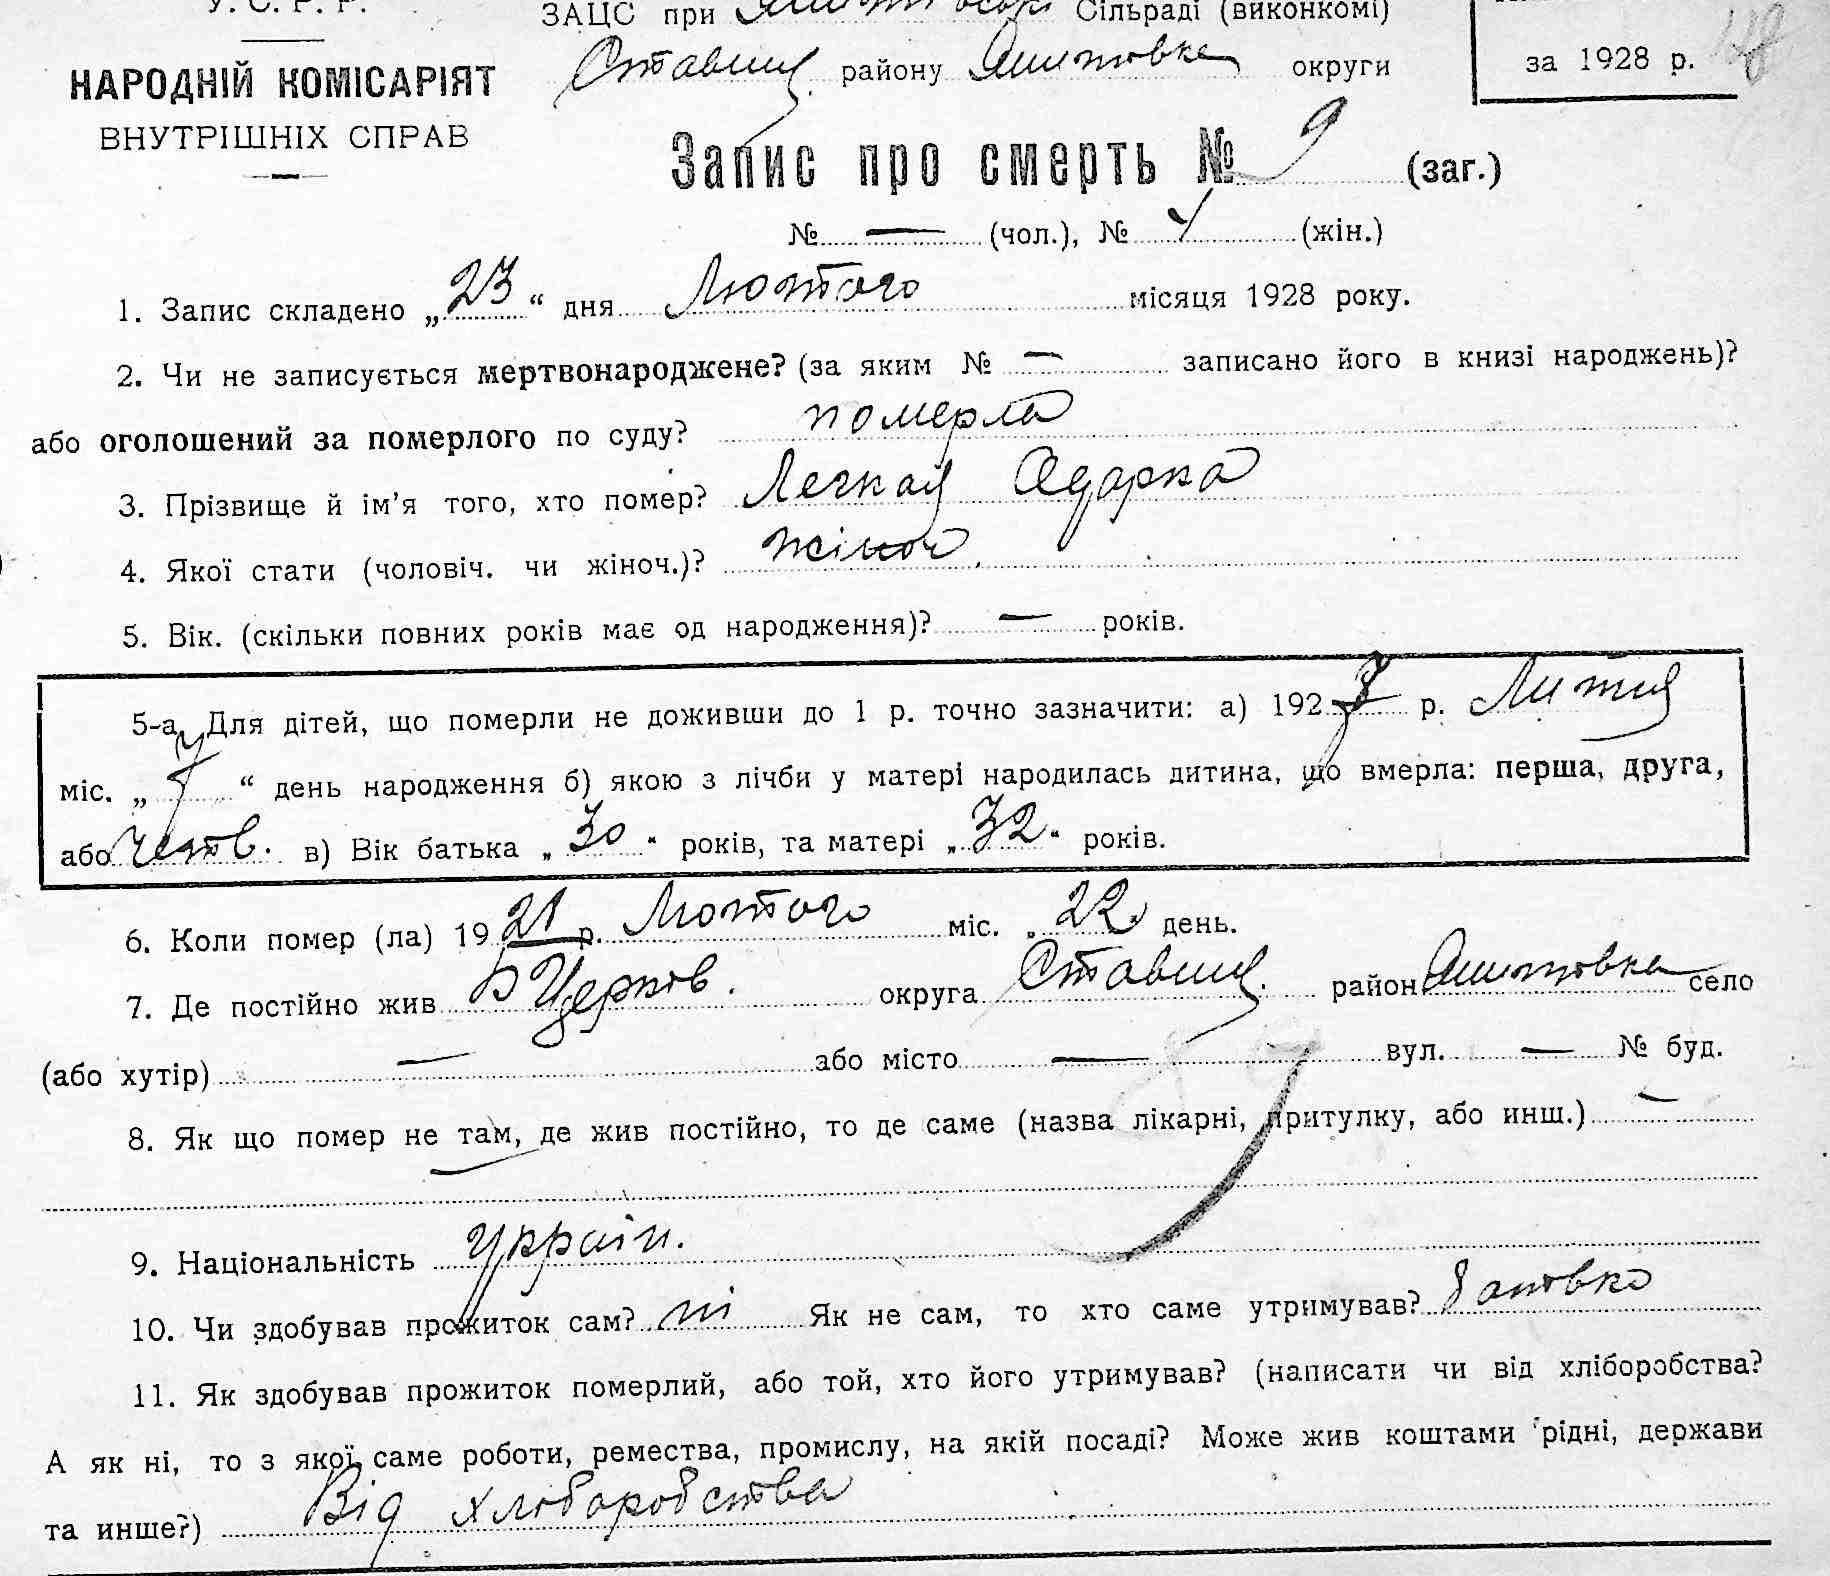 У. С. Р. Р.
ЗАЦС при Сільраді (виконкомі)
Ставищ. району Яшитовка округи
за 1928 р.
НАРОДНІЙ КОМІСАРІЯТ
ВНУТРІШНІХ СПРАВ
Запис про смерть № 9 (заг.)
№ — (чол.), № 4 (жін.)
1. Запис складено „23“ дня Лютого місяця 1928 року.
2. Чи не записується мертвонароджене? (за яким № — записано його в книзі народжень)?
або оголошений за померлого по суду? померла
3. Прізвище й ім'я того, хто помер? Легкая Одарка
4. Якої стати (чоловіч. чи жіноч.)? жіноч
5. Вік. (скільки повних років має од народження)? — років.
5-а. Для дітей, що померли не доживши до 1 р. точно зазначити: а) 1927 р.
міс. „7“ день народження б) якою з лічби у матері народилась дитина, що вмерла: перша, друга,
або четв. в) Вік батька „30“ років, та матері „32“ років.
6. Коли помер (ла) 19 р. Лютого міс. „22“ день.
7. Де постійно жив Б Церков. округа Ставищ. район Яшитовка село
(або хутір) — або місто — вул. — № буд.
8. Як що помер не там, де жив постійно, то де саме (назва лікарні, притулку, або инш.) —
9. Національність Україн.
10. Чи здобував прожиток сам? ні Як не сам, то хто саме утримував? батовко
11. Як здобував прожиток померлий, або той, хто його утримував? (написати чи від хліборобства?
А як ні, то з якої саме роботи, ремества, промислу, на якій посаді? Може жив коштами рідні, держави
та инше?) Від хліборобства